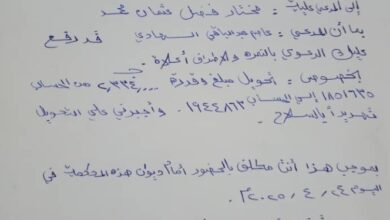 إلى المدعى عليه : مختار فضل عثمان محمد
بما أن المدعي : عبدالباقي قد رفع
عليك الدعوى بالنمرة والاطراف أعلاه .
بخصوص : تحويل مبلغ وقدرة ٢,٣٣٤,٠٠٠ ج من الحساب
١٨٥١٦٣٥ إلى الحساب ١٩٤٤٨٦٣ . وأجبرني على التحويل
تهديداً بالسلاح .
بموجب هذا أنت مكلف بالحضور أمام ديوان هذه المحكمة في
اليوم ٢٤ / ٤ / ٢٠٢٥م .